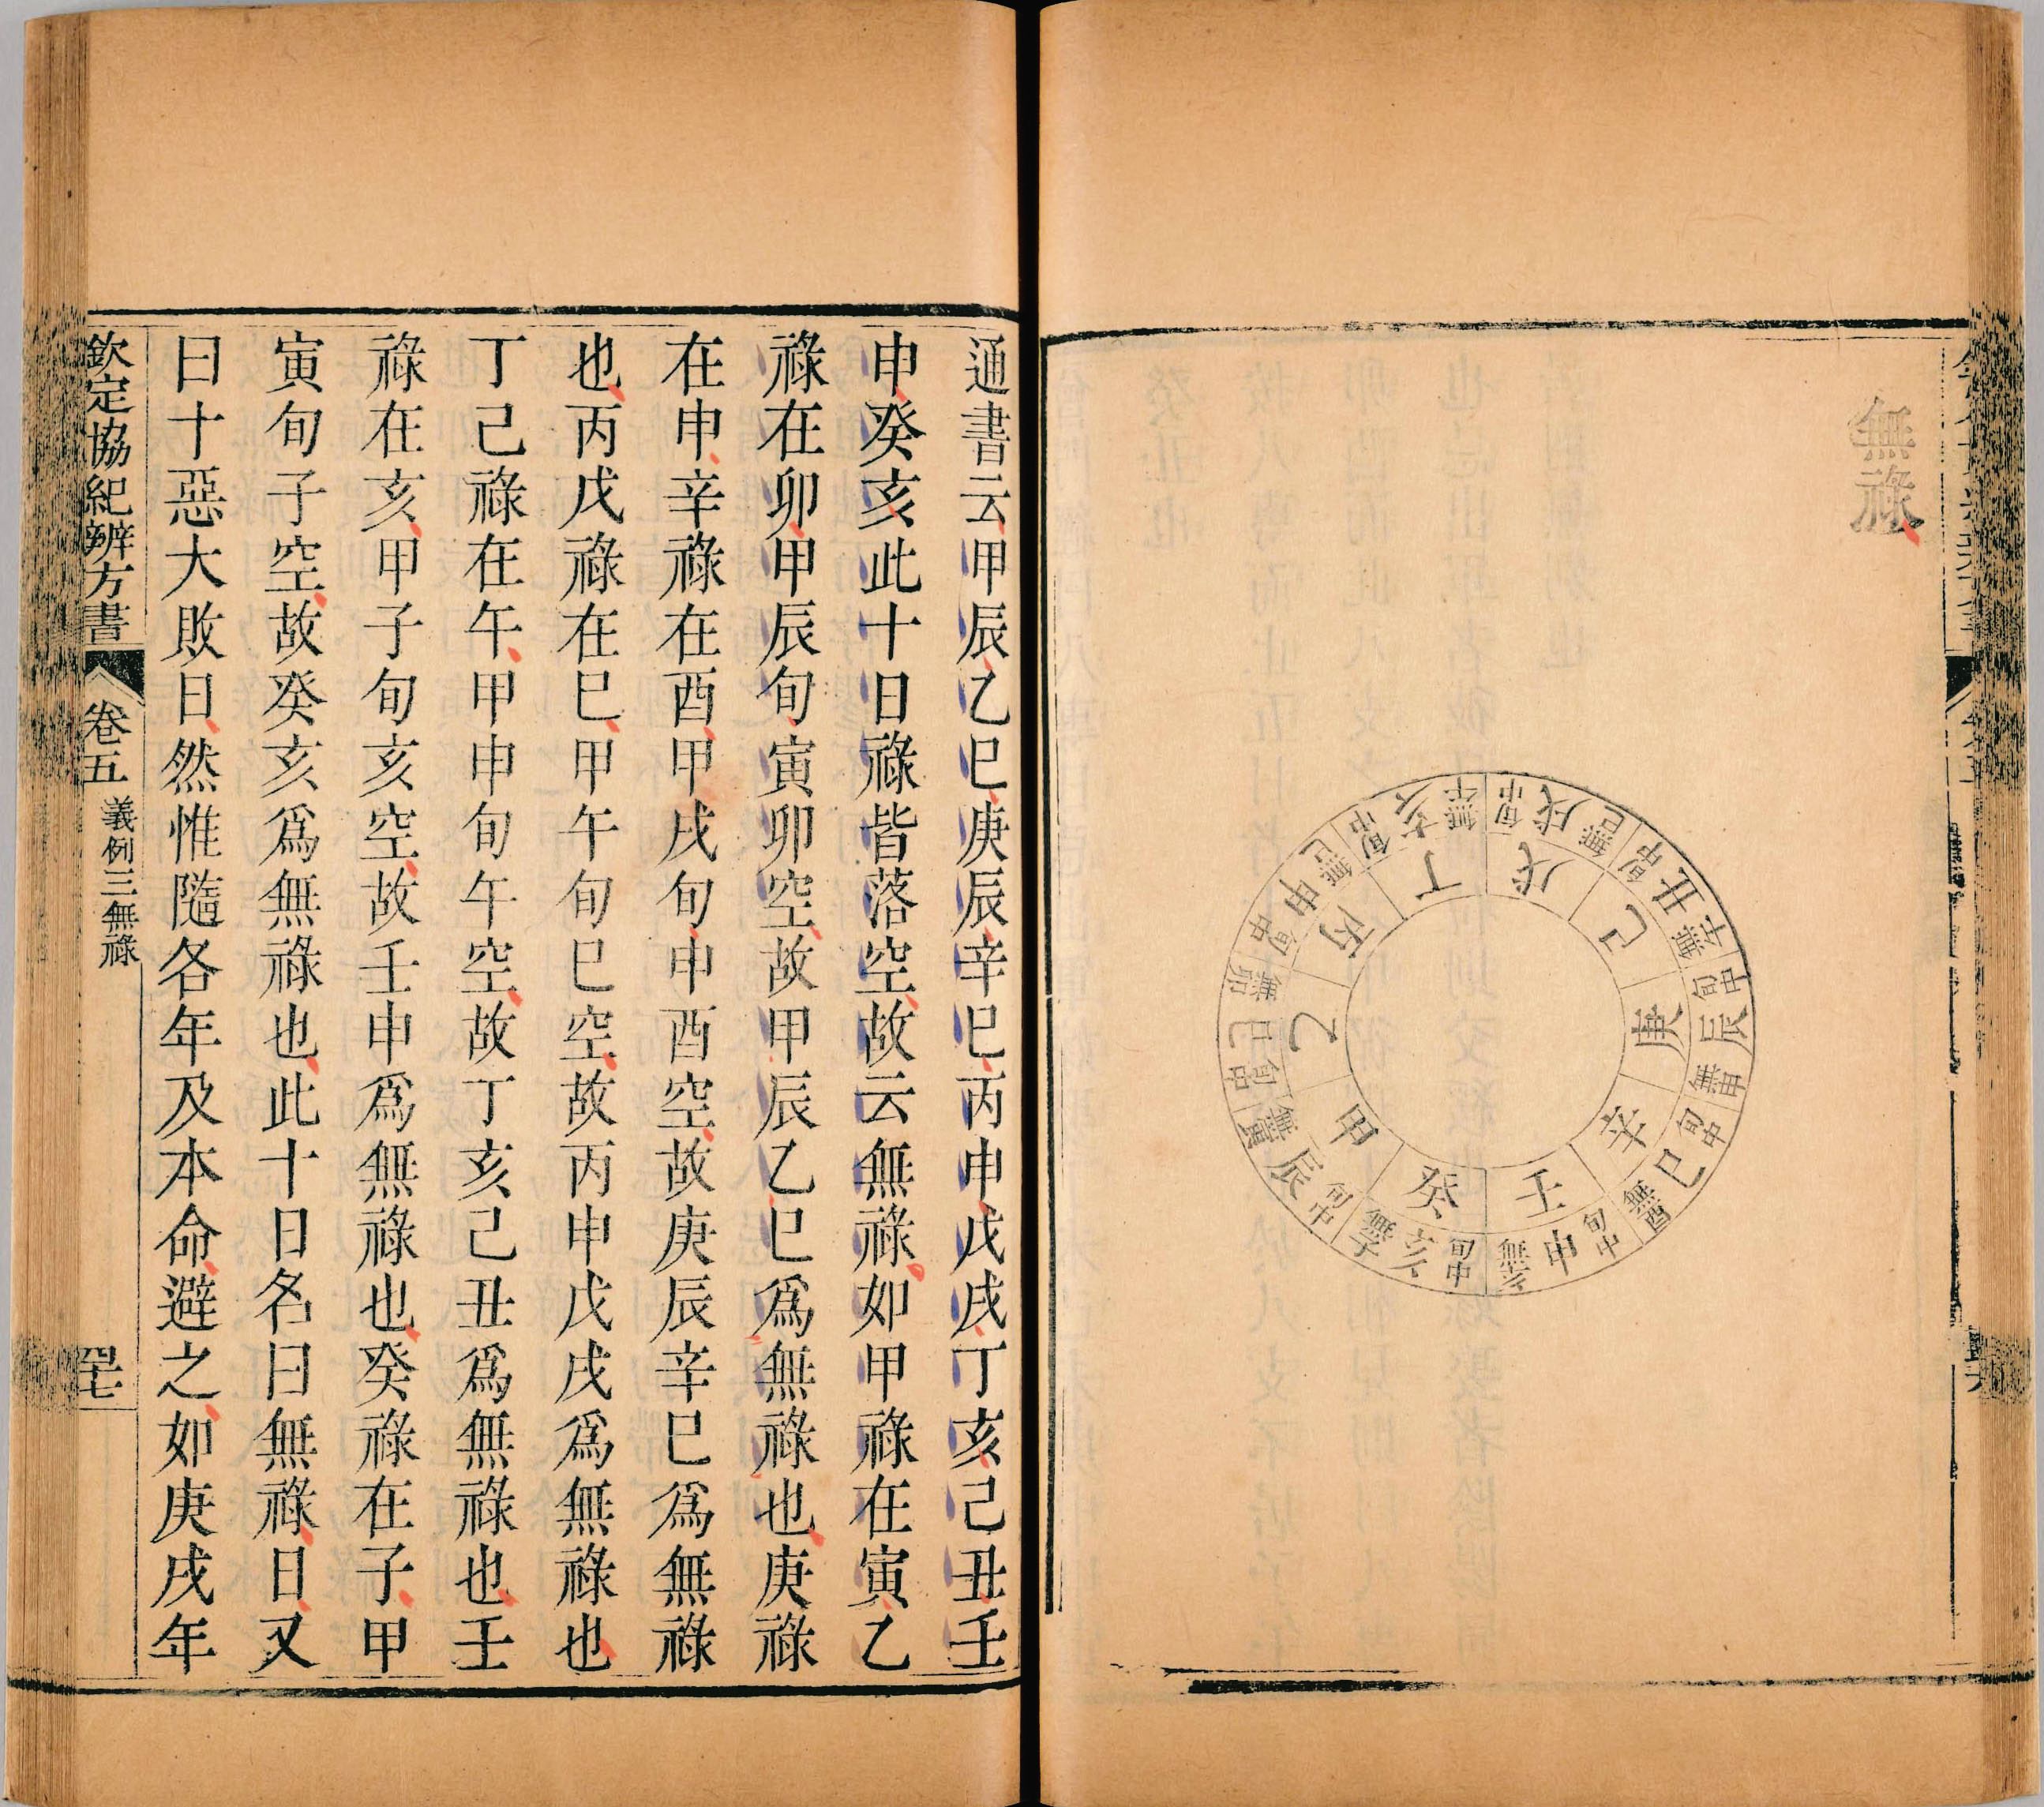 無祿
戊戌旬中無巳
己丑旬中無午
庚辰旬中無申
辛巳旬中無酉
壬申旬中無亥
癸亥旬中無子
甲辰旬中無寅
乙巳旬中無卯
丙申旬中無巳
丁亥旬中無午
通書云甲辰乙巳庚辰辛巳丙申戊戌丁亥己丑壬
申癸亥此十日祿皆落空故云無祿如甲祿在寅乙
祿在卯甲辰旬寅卯空故甲辰乙巳爲無祿也庚祿
在申辛祿在酉甲戌旬申酉空故庚辰辛巳爲無祿
也丙戊祿在巳甲午旬巳空故丙申戊戌爲無祿也
丁己祿在午甲申旬午空故丁亥己丑爲無祿也壬
祿在亥甲子旬亥空故壬申爲無祿也癸祿在子甲
寅旬子空故癸亥爲無祿也此十日名曰無祿日又
曰十惡大敗日然惟隨各年及本命避之如庚戌年
欽定協紀辨方書 卷五 義例三無祿 四十七